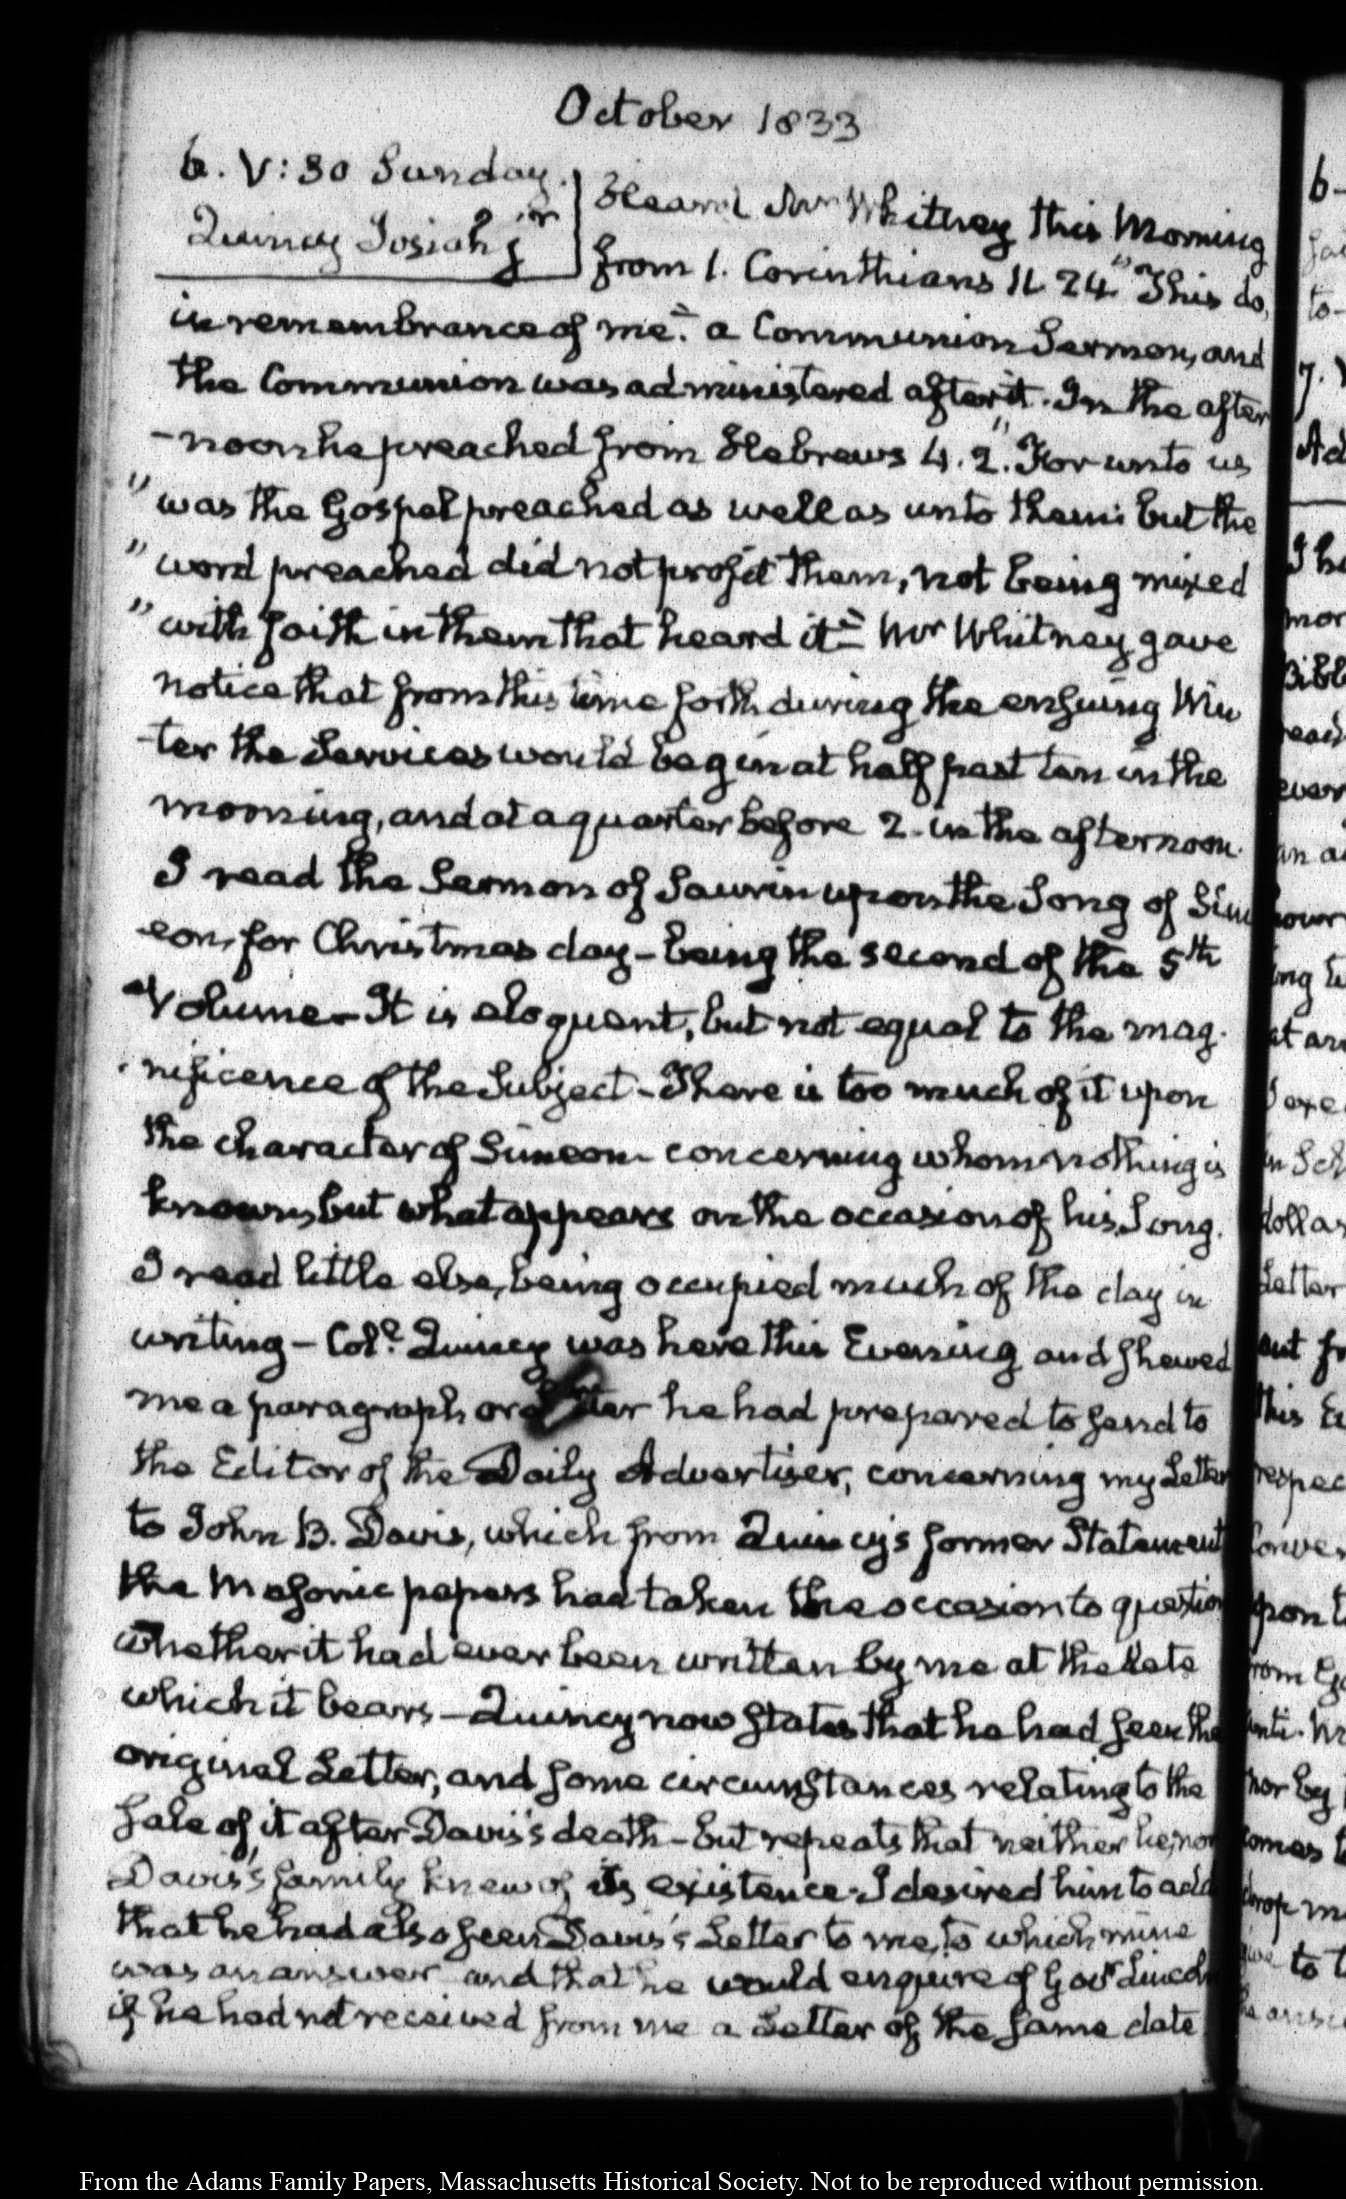 October 1833
6. V:30 Sunday.
Quincy Josiah jr
Heard Mr Whitney this Morning
from 1. Corinthians 11 24 "This do,
in remembrance of me": a Communion Sermon, and
the Communion was administered after it. In the after
-noon he preached from Hebrews 4. 2. "For unto us
"was the Gospel preached as well as unto them: but the
"word preached did not profit them, not being mixed
"with faith in them that heard it" Mr Whitney gave
notice that from this time forth during the ensuing Win
-ter the Services would begin at half past ten in the
morning, and at a quarter before 2. in the afternoon.
I read the Sermon of Saurin upon the Song of Sim
eon, for Christmas day - being the second of the 5th
Volume - It is eloquent, but not equal to the mag-
nificence of the Subject - There is too much of it upon
the character of Simeon concerning whom nothing is
known, but what appears on the occasion of his Song.
I read little else, being occupied much of the day in
writing - Coll. Quincy was here this Evening and shewed
me a paragraph or a he had prepared to send to
the Editor of the Daily Advertiser, concerning my Letter
to John B. Davis, which from Quincy's former Statement
the Masonic papers had taken the occasion to question
whether it had ever been written by me at the date
which it bears - Quincy now states that he had seen the
original Letter, and some circumstances relating to the
sale of it after Davis's death - but repeats that neither he, nor
Davis's family knew of its existence. I desired him to add
that he had also seen Davis's Letter to me, to which mine
was an answer and that he would enquire of Govr Lincoln
if he had not received from me a Letter of the same date
From the Adams Family Papers, Massachusetts Historical Society. Not to be reproduced without permission.